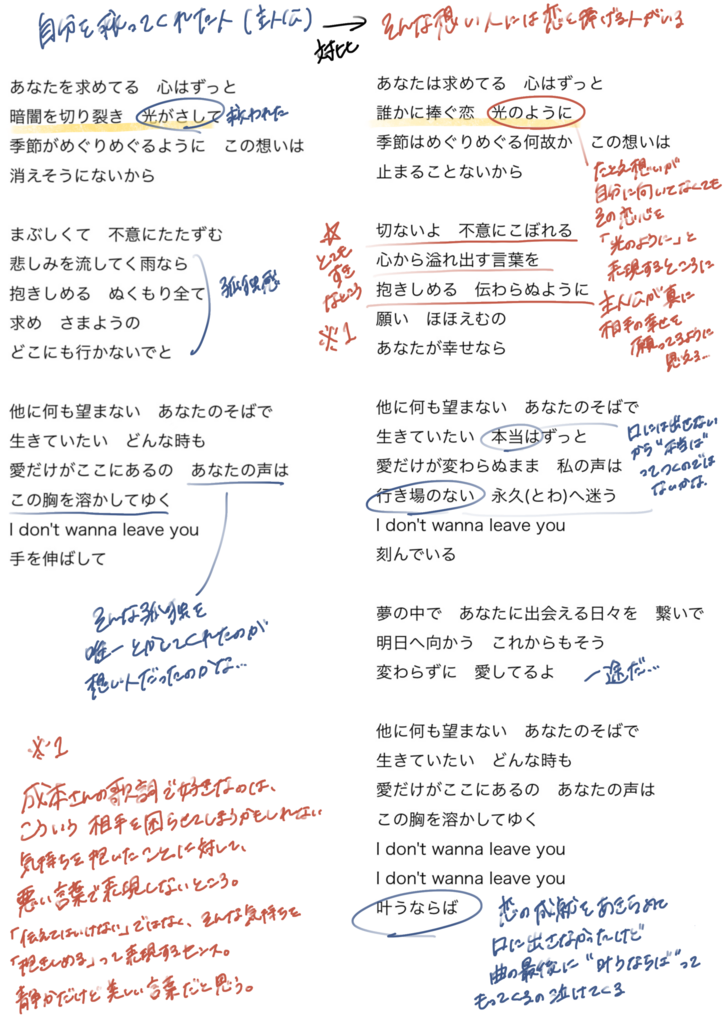 自分を救ってくれた人(主人公)
対比
そんな想い人には恋を捧げる人がいる
あなたを求めてる 心はずっと
暗闇を切り裂き 光がさして
救われた
季節がめぐりめぐるように この想いは
消えそうにないから
まぶしくて 不意にたたずむ
悲しみを流してく雨なら
抱きしめる ぬくもり全て
求め さまようの
どこにも行かないでと
孤独感
他に何も望まない あなたのそばで
生きていたい どんな時も
愛だけがここにあるの あなたの声は
この胸を溶かしてゆく
I don't wanna leave you
手を伸ばして
そんな孤独を
唯一とかしてくれたのが
想い人だったのかな…
※1
成本さんの歌詞で好きなのは、
こういう相手を困らせてしまうかもしれない
気持ちを抱いたことに対して、
悪い言葉で表現しないところ。
「伝えてはいけない」ではなく、そんな気持ちを
「抱きしめる」って表現するセンス。
静かだけど美しい言葉だと思う。
あなたは求めてる 心はずっと
誰かに捧ぐ恋 光のように
季節はめぐりめぐる何故か この想いは
止まることないから
たとえ想いが
自分に向いてなくても
その恋心を
「光のように」と
表現するところに
主人公が真に
相手の幸せを
願ってるように
思える…
☆
とても
すき
なところ
※1
切ないよ 不意にこぼれる
心から溢れ出す言葉を
抱きしめる 伝わらぬように
願い ほほえむの
あなたが幸せなら
他に何も望まない あなたのそばで
生きていたい 本当はずっと
愛だけが変わらぬまま 私の声は
行き場のない 永久(とわ)へ迷う
I don't wanna leave you
刻んでいる
口には出せない
から"本当は"
ってつくのでは
ないかな
夢の中で あなたに出会える日々を 繋いで
明日へ向かう これからもそう
変わらずに 愛してるよ
一途だ…
他に何も望まない あなたのそばで
生きていたい どんな時も
愛だけがここにあるの あなたの声は
この胸を溶かしてゆく
I don't wanna leave you
I don't wanna leave you
叶うならば
恋の成就をあきらめて
口に出さなかったけど
曲の最後に"叶うならば"って
もってくるの泣けてくる